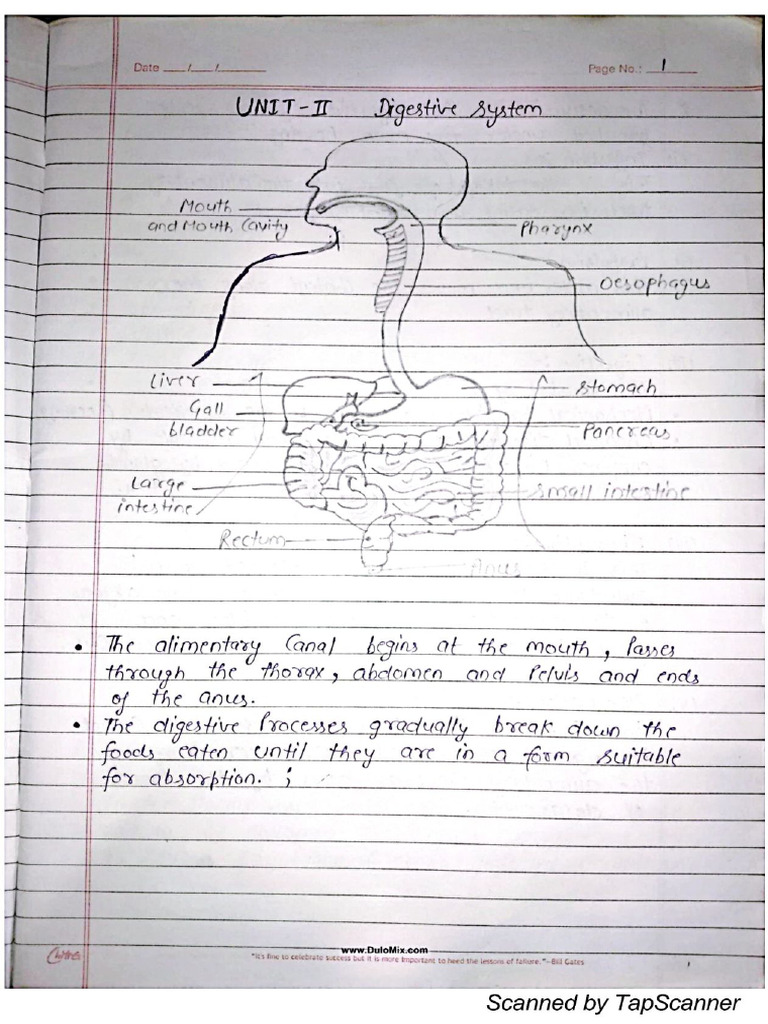 Date __/__/____
Page No.: 1
UNIT-II Digestive System
Mouth
and Mouth Cavity
Pharynx
Oesophagus
Liver
Stomach
Gall
bladder
Pancreas
Large
intestine
Small intestine
Rectum
Anus
• The alimentary Canal begins at the mouth, Passes
through the thorax, abdomen and Pelvis and ends
of the anus.
• The digestive Processes gradually break down the
foods eaten until they are in a form suitable
for absorption. ;
www.DuloMix.com
"It's fine to celebrate success but it is more important to heed the lessons of failure."–Bill Gates
Scanned by TapScanner